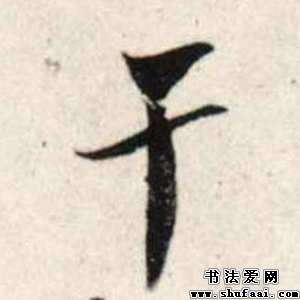 干
书法爱网
www.shufaai.com